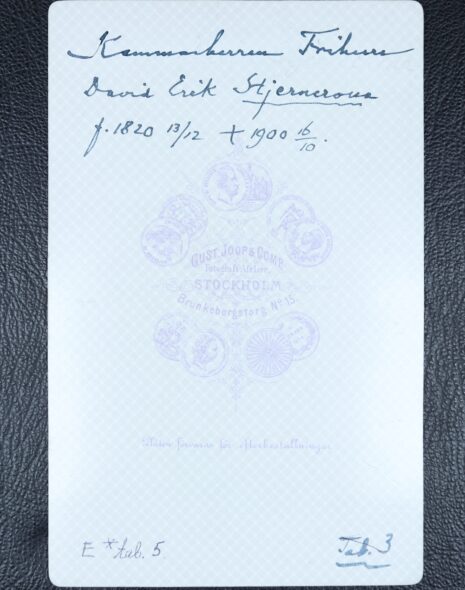 Kammarherren Friherre
David Erik Stjerncrona
f. 1820 13/12 + 1900 16/10.
GUST. JOOP & COMP.
Fotografi-Atelier,
STOCKHOLM
Brunkebergstorg No 15.
Plåten förvaras för efterbeställningar
E * tab. 5.
Tab. 3